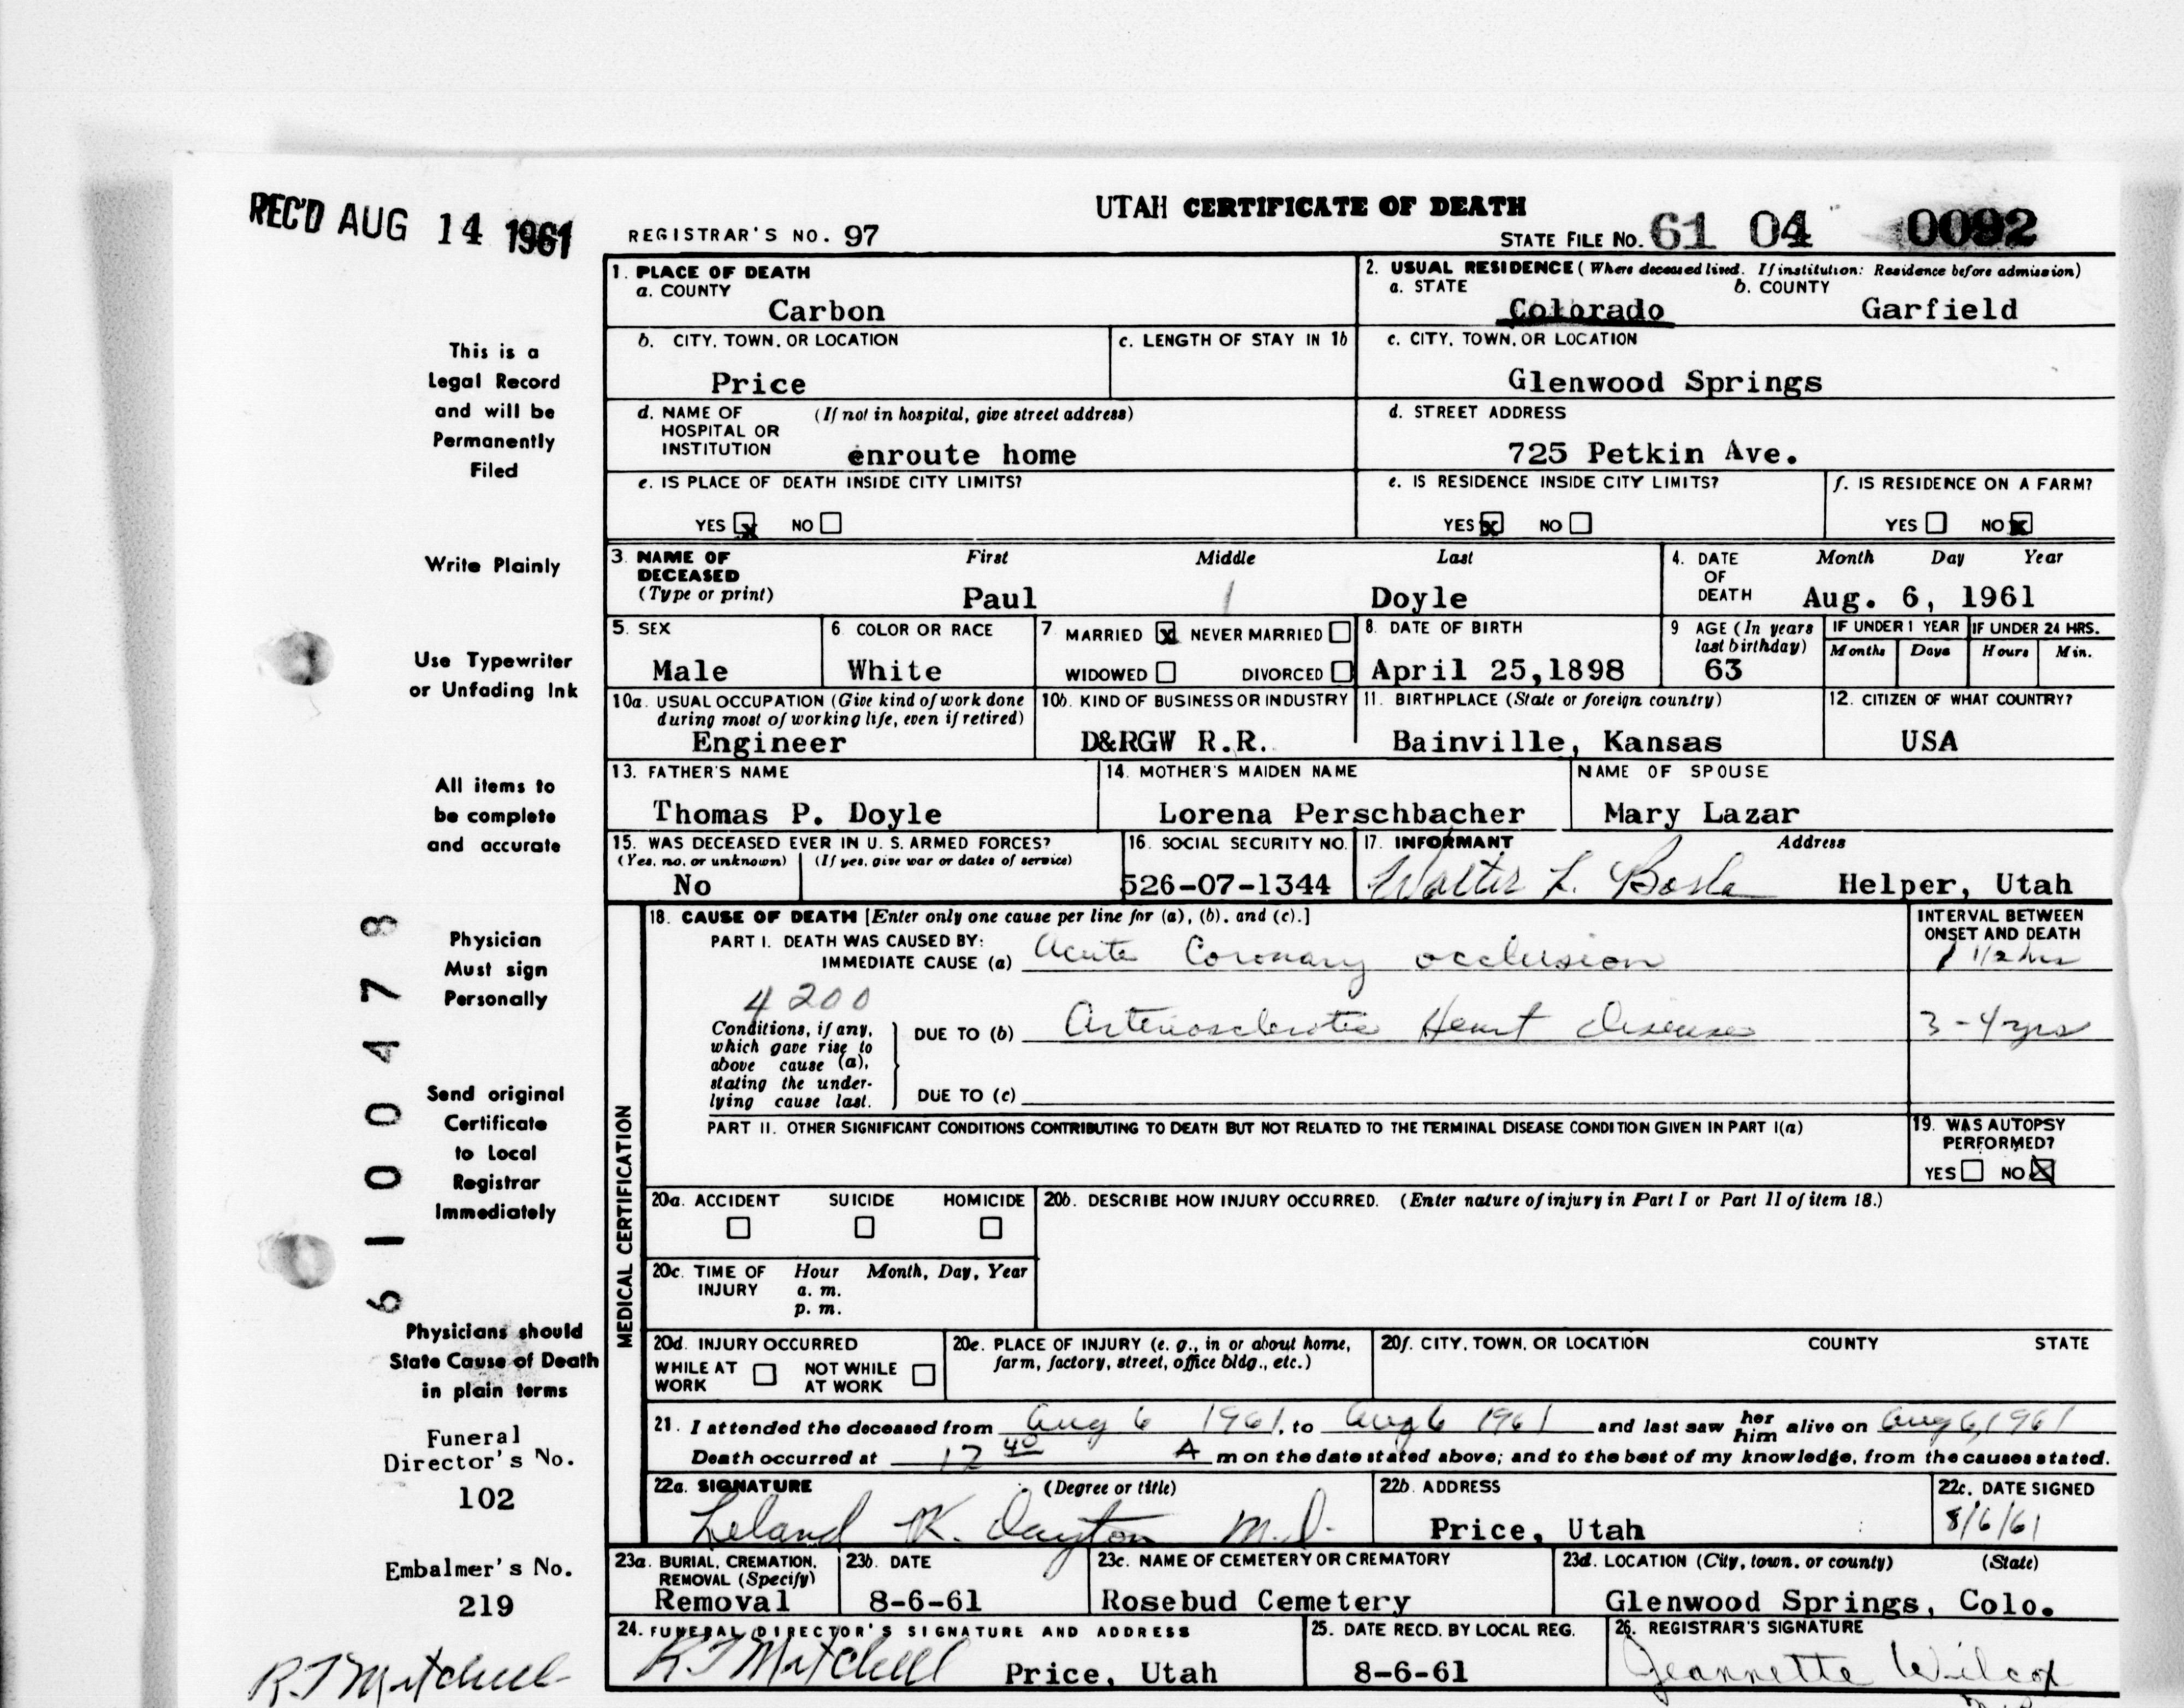 REC'D AUG 14 1961
UTAH CERTIFICATE OF DEATH
REGISTRAR'S NO. 97
STATE FILE NO. 61 04 0092
1. PLACE OF DEATH
a. COUNTY
Carbon
2. USUAL RESIDENCE (Where deceased lived. If institution: Residence before admission)
a. STATE b. COUNTY
Colorado Garfield
b. CITY, TOWN, OR LOCATION
Price
c. LENGTH OF STAY IN 1b
c. CITY, TOWN, OR LOCATION
Glenwood Springs
d. NAME OF (If not in hospital, give street address)
HOSPITAL OR
INSTITUTION enroute home
d. STREET ADDRESS
725 Petkin Ave.
e. IS PLACE OF DEATH INSIDE CITY LIMITS?
YES x NO
e. IS RESIDENCE INSIDE CITY LIMITS?
YES x NO
f. IS RESIDENCE ON A FARM?
YES NO x
3. NAME OF DECEASED (Type or print)
First Middle Last
Paul Doyle
4. DATE OF DEATH
Month Day Year
Aug. 6, 1961
5. SEX
Male
6 COLOR OR RACE
White
7 MARRIED x NEVER MARRIED
WIDOWED DIVORCED
8. DATE OF BIRTH
April 25,1898
9 AGE (In years last birthday)
63
IF UNDER 1 YEAR IF UNDER 24 HRS.
Months Days Hours Min.
10a. USUAL OCCUPATION (Give kind of work done
during most of working life, even if retired)
Engineer
10b. KIND OF BUSINESS OR INDUSTRY
D&RGW R.R.
11. BIRTHPLACE (State or foreign country)
Bainville, Kansas
12. CITIZEN OF WHAT COUNTRY?
USA
13. FATHER'S NAME
Thomas P. Doyle
14. MOTHER'S MAIDEN NAME
Lorena Perschbacher
NAME OF SPOUSE
Mary Lazar
15. WAS DECEASED EVER IN U. S. ARMED FORCES?
(Yes, no, or unknown) (If yes, give war or dates of service)
No
16. SOCIAL SECURITY NO.
526-07-1344
17. INFORMANT Address
Walter L. Helper, Utah
MEDICAL CERTIFICATION
18. CAUSE OF DEATH [Enter only one cause per line for (a), (b), and (c).]
INTERVAL BETWEEN
ONSET AND DEATH
PART I. DEATH WAS CAUSED BY:
IMMEDIATE CAUSE (a) Acute Coronary occlusion 1/2 hrs
4200
Conditions, if any,
which gave rise to
above cause (a),
stating the under-
lying cause last.
DUE TO (b) Arteriosclerotic Heart Disease 3-4 yrs
DUE TO (c)
PART II. OTHER SIGNIFICANT CONDITIONS CONTRIBUTING TO DEATH BUT NOT RELATED TO THE TERMINAL DISEASE CONDITION GIVEN IN PART I(a)
19. WAS AUTOPSY
PERFORMED?
YES NO x
20a. ACCIDENT SUICIDE HOMICIDE
20b. DESCRIBE HOW INJURY OCCURRED. (Enter nature of injury in Part I or Part II of item 18.)
20c. TIME OF INJURY
Hour Month, Day, Year
a. m.
p. m.
20d. INJURY OCCURRED
WHILE AT WORK NOT WHILE AT WORK
20e. PLACE OF INJURY (e. g., in or about home,
farm, factory, street, office bldg., etc.)
20f. CITY, TOWN, OR LOCATION COUNTY STATE
21. I attended the deceased from Aug 6 1961, to Aug 6 1961 and last saw her him alive on Aug 6, 1961
Death occurred at 12 40 A m on the date stated above; and to the best of my knowledge, from the causes stated.
22a. SIGNATURE (Degree or title)
Leland K. Dayton M.D.
22b. ADDRESS
Price, Utah
22c. DATE SIGNED
8/6/61
23a. BURIAL, CREMATION,
REMOVAL (Specify)
Removal
23b. DATE
8-6-61
23c. NAME OF CEMETERY OR CREMATORY
Rosebud Cemetery
23d. LOCATION (City, town, or county) (State)
Glenwood Springs, Colo.
24. FUNERAL DIRECTOR'S SIGNATURE AND ADDRESS
R J Mitchell Price, Utah
25. DATE RECD. BY LOCAL REG.
8-6-61
26. REGISTRAR'S SIGNATURE
Jeannette Wilcox
This is a
Legal Record
and will be
Permanently
Filed
Write Plainly
Use Typewriter
or Unfading Ink
All items to
be complete
and accurate
Physician
Must sign
Personally
Send original
Certificate
to Local
Registrar
Immediately
Physicians should
State Cause of Death
in plain terms
6100478
Funeral
Director's No.
102
Embalmer's No.
219
R J Mitchell